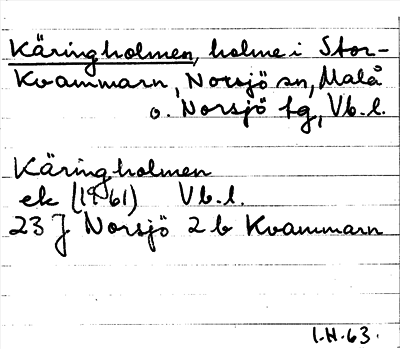 Käringholmen, holme i Stor-
Kvammarn, Norsjö sn, Malå
o. Norsjö tg, Vb. l.
Käringholmen
ek (1961) Vb. l.
23 J Norsjö 2 b Kvammarn
I.H. 63.